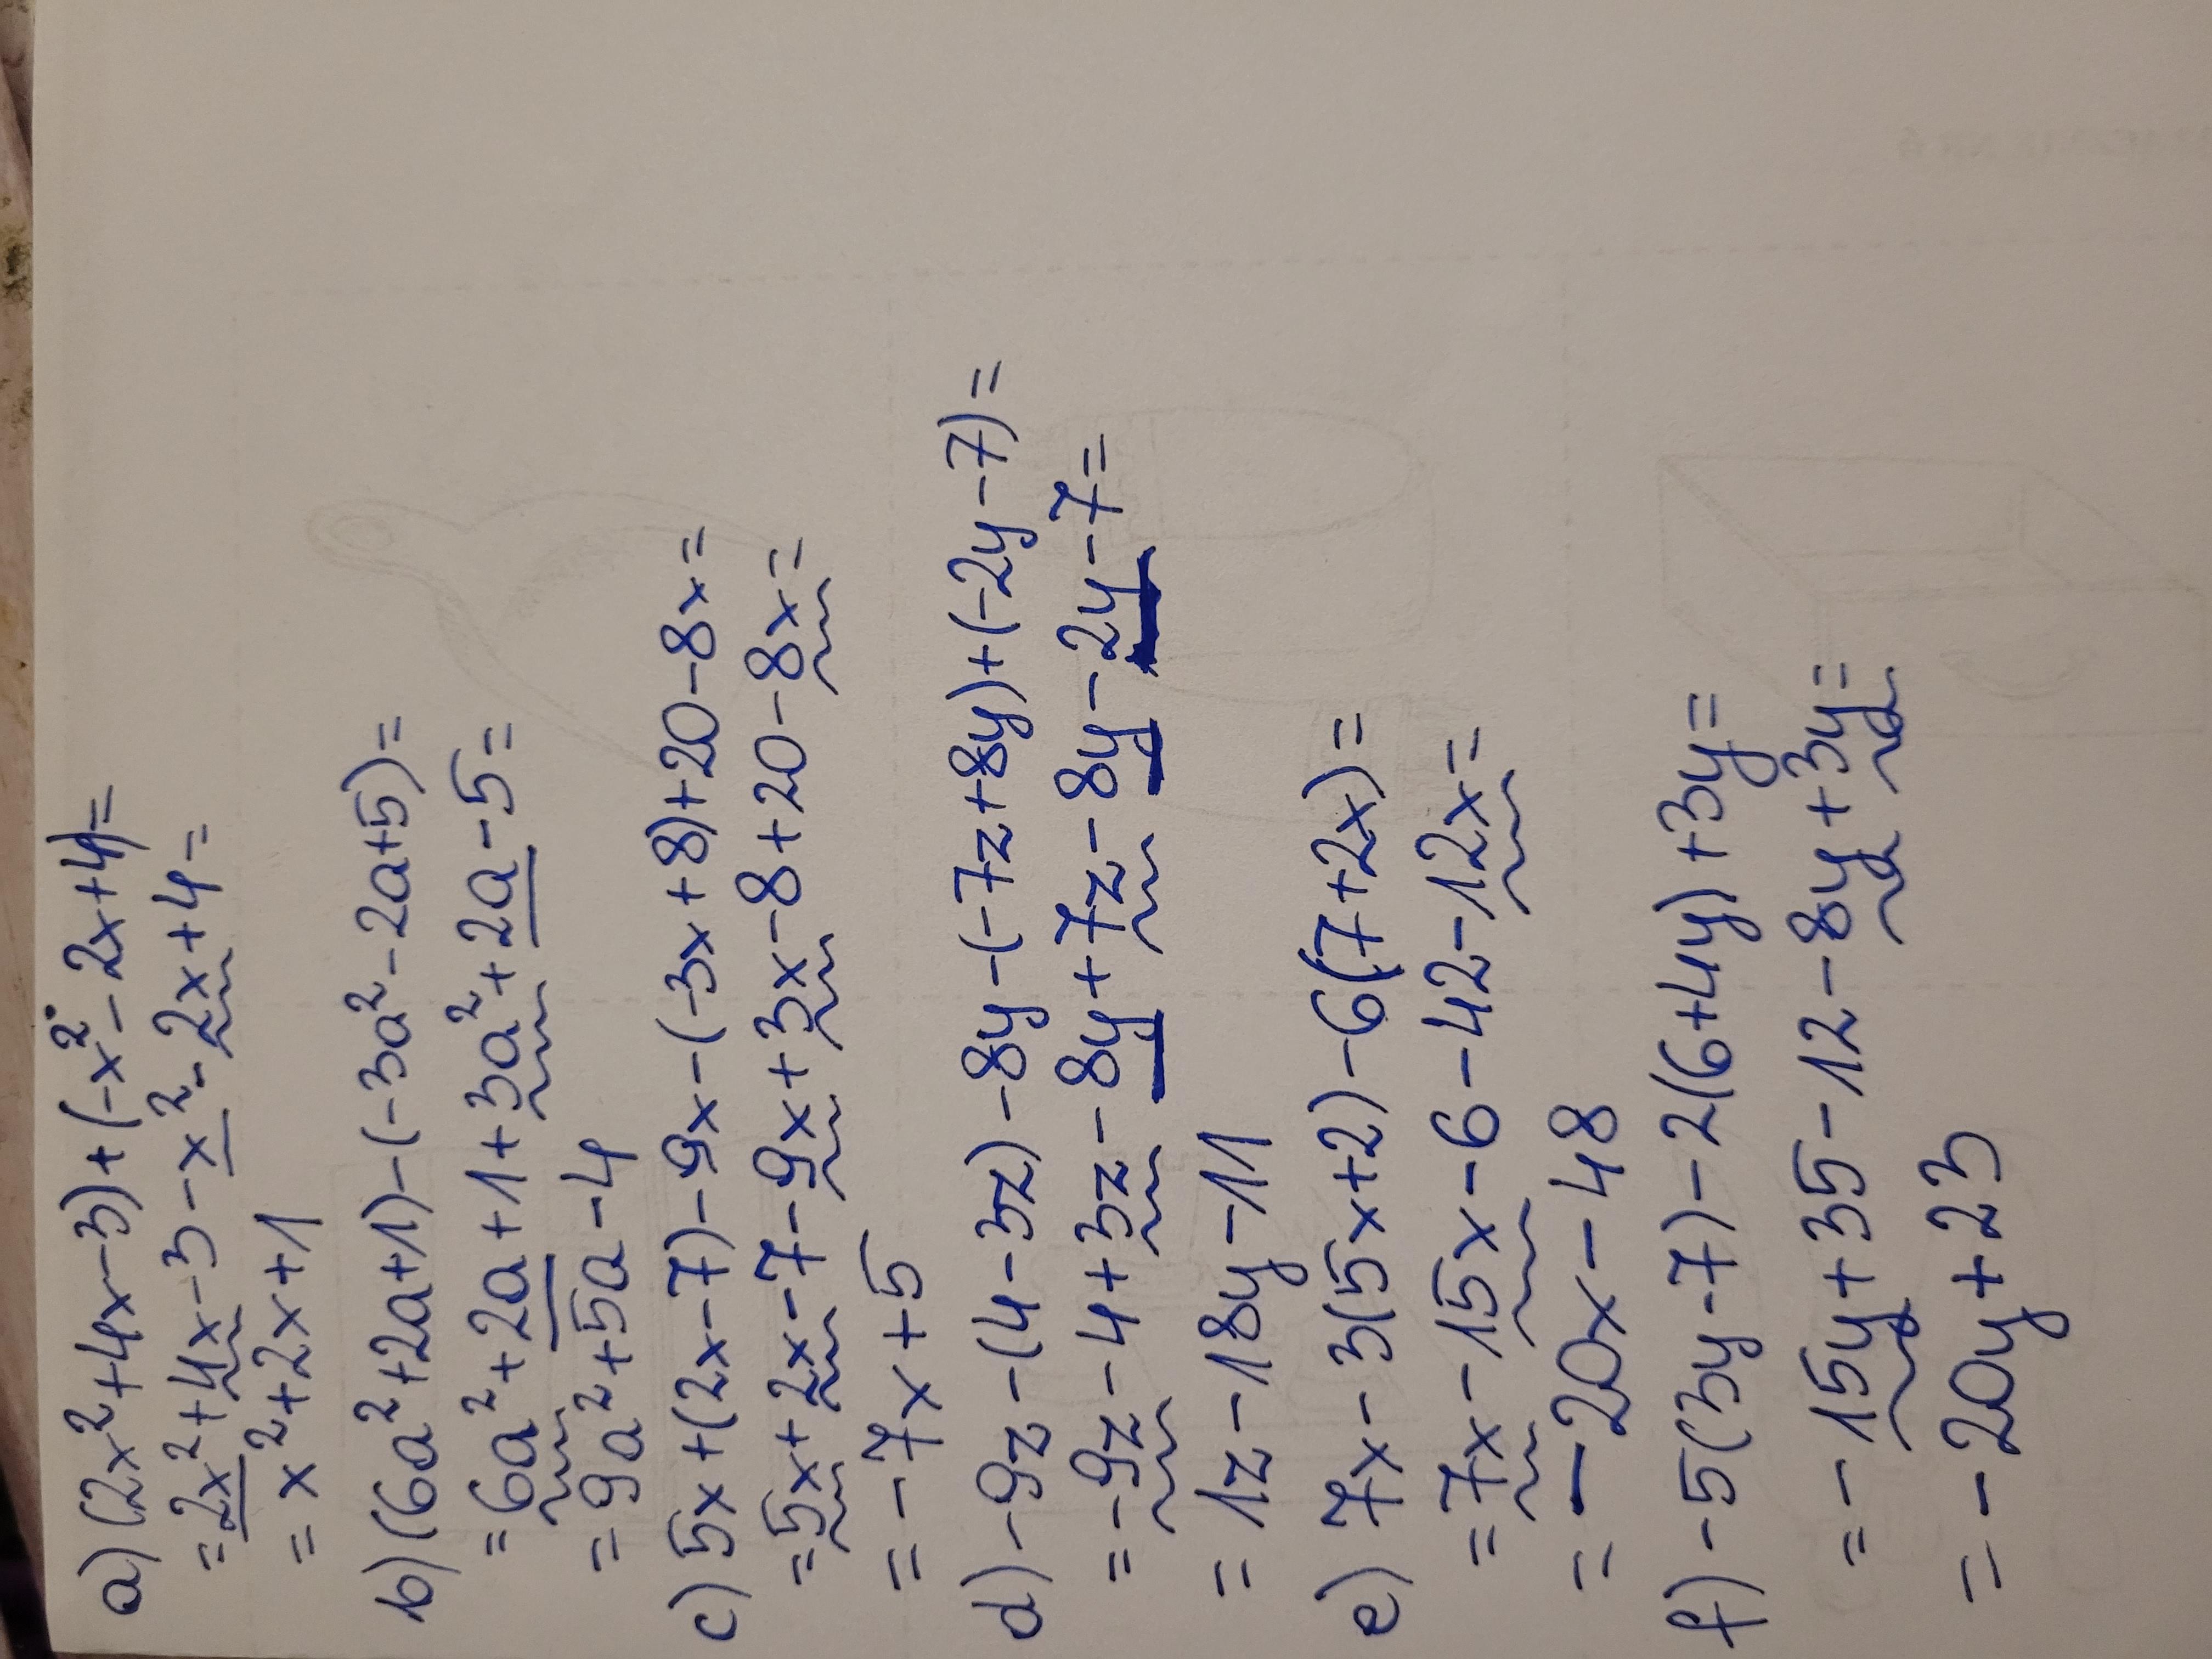 a) (2x²+4x-3)+(-x²-2x+4)=
=2x²+4x-3-x²-2x+4=
=x²+2x+1
b) (6a²+2a+1)-(-3a²-2a+5)=
=6a²+2a+1+3a²+2a-5=
=9a²+5a-4
c) 5x+(2x-7)-9x-(-3x+8)+20-8x=
=5x+2x-7-9x+3x-8+20-8x=
=-7x+5
d) -9z-(4-3z)-8y-(-7z+8y)+(-2y-7)=
=-9z-4+3z-8y+7z-8y-2y-7=
=1z-18y-11
e) 7x-3(5x+2)-6(7+2x)=
=7x-15x-6-42-12x=
=-20x-48
f) -5(3y-7)-2(6+4y)+3y=
=-15y+35-12-8y+3y=
=-20y+23